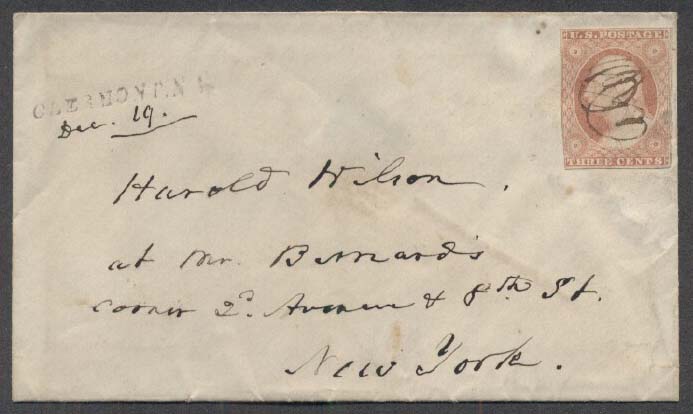 U.S. POSTAGE
CLERMONT. N Y
Dec. 19.
THREE CENTS
Harold Wilson.
at Mr. Bernard's
corner 2d. Avenue & 8th St.
New York.